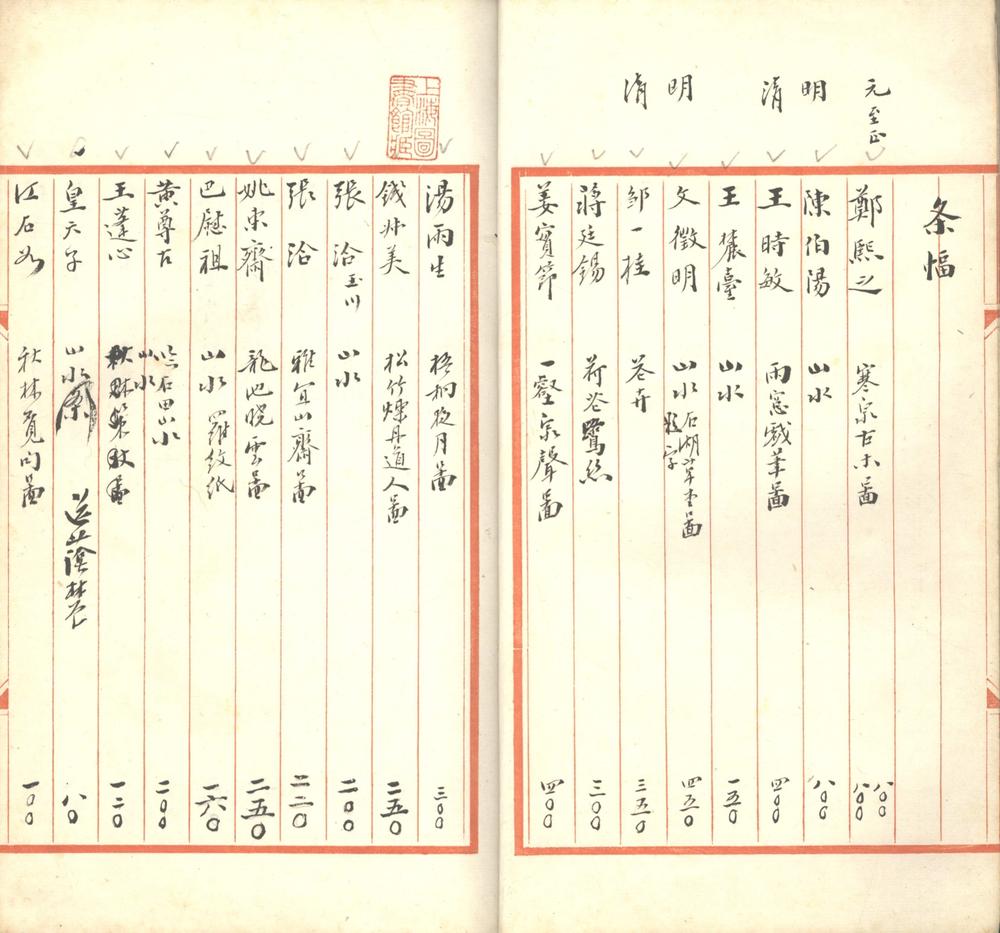 条幅
元至正
鄭熙之 寒泉古木圖 八〇〇 八〇〇
明
陳伯陽 山水 八〇〇
清
王時敏 雨窓戲筆圖 四〇〇
王麓臺 山水 一五〇
明
文徵明 山水 石湖草堂圖 字 四五〇
清
鄒一桂 花卉 三五〇
蔣廷錫 荷花鷺絲 三〇〇
姜實節 一壑泉聲圖 四〇〇
上海圖書館藏
湯雨生 梧桐夜月圖 三〇〇
錢叔美 松竹煉丹道人圖 二五〇
張洽 玉川 山水 二〇〇
張洽 雅宜山齋圖 二二〇
姚東齋 龍池曉雲圖 二五〇
巴慰祖 山水 羅紋紙 一六〇
黄尊古 石田山水 山水 二〇〇
王蓬心 秋 圖 一二〇
皇六子 山水 八〇
江石如 秋林覓句圖 一〇〇